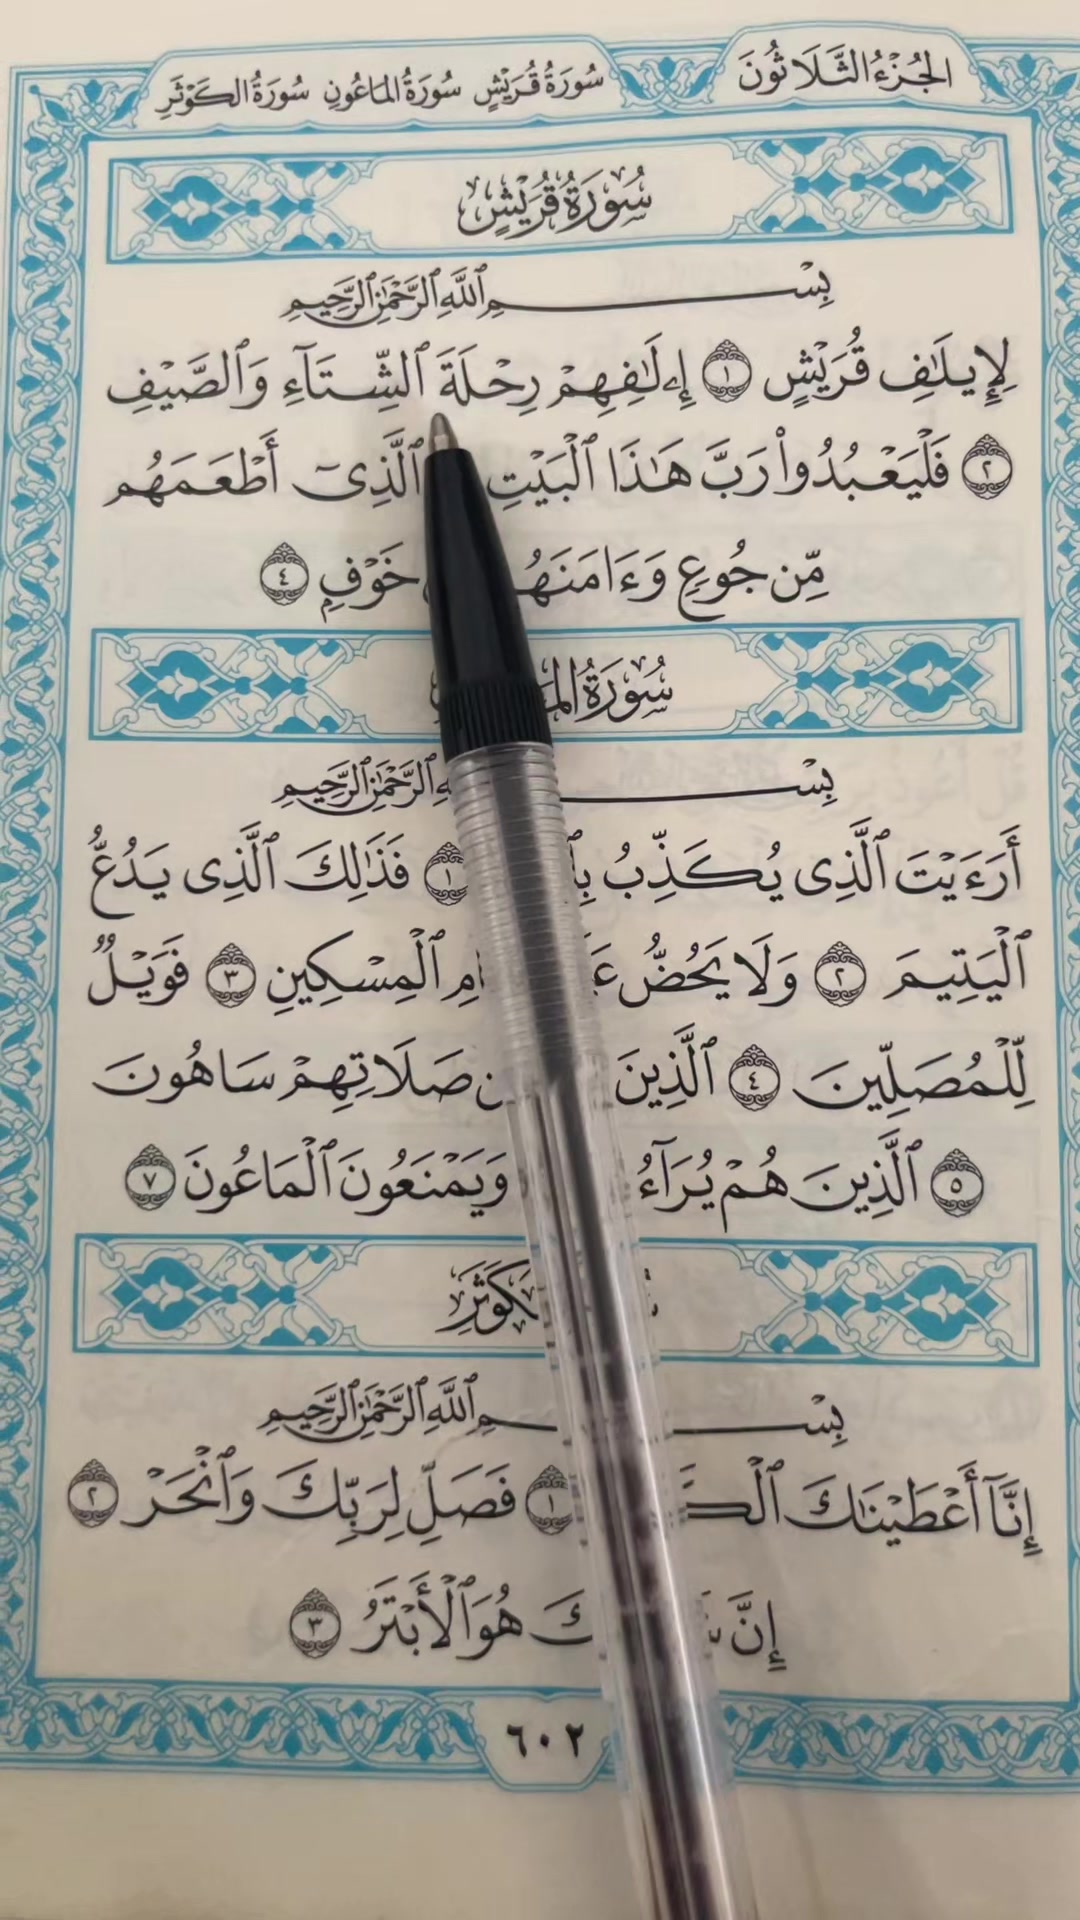 الجُزْءُ الثَّلَاثُونَ
سُورَةُ قُرَيْشٍ سُورَةُ المَاعُونِ سُورَةُ الكَوْثَرِ
سُورَةُ قُرَيْشٍ
بِسْمِ ٱللَّهِ ٱلرَّحْمَٰنِ ٱلرَّحِيمِ
لِإِيلَٰفِ قُرَيْشٍ ١ إِۦلَٰفِهِمْ رِحْلَةَ ٱلشِّتَآءِ وَٱلصَّيْفِ
٢ فَلْيَعْبُدُوا۟ رَبَّ هَٰذَا ٱلْبَيْتِ ٱلَّذِىٓ أَطْعَمَهُم
مِّن جُوعٍ وَءَامَنَهُ خَوْفٍ ٤
سُورَةُ
بِسْ ٱلرَّحْمَٰنِ ٱلرَّحِيمِ
أَرَءَيْتَ ٱلَّذِى يُكَذِّبُ ١ فَذَٰلِكَ ٱلَّذِى يَدُعُّ
ٱلْيَتِيمَ ٢ وَلَا يَحُضُّ ٱلْمِسْكِينِ ٣ فَوَيْلٌ
لِّلْمُصَلِّينَ ٤ ٱلَّذِينَ صَلَاتِهِمْ سَاهُونَ
٥ ٱلَّذِينَ هُمْ يُرَآءُ وَيَمْنَعُونَ ٱلْمَاعُونَ ٧
بِسْمِ ٱللَّهِ ٱلرَّحْمَٰنِ ٱلرَّحِيمِ
إِنَّآ أَعْطَيْنَٰكَ ١ فَصَلِّ لِرَبِّكَ وَٱنْحَرْ ٢
إِنَّ هُوَ ٱلْأَبْتَرُ ٣
٦٠٢